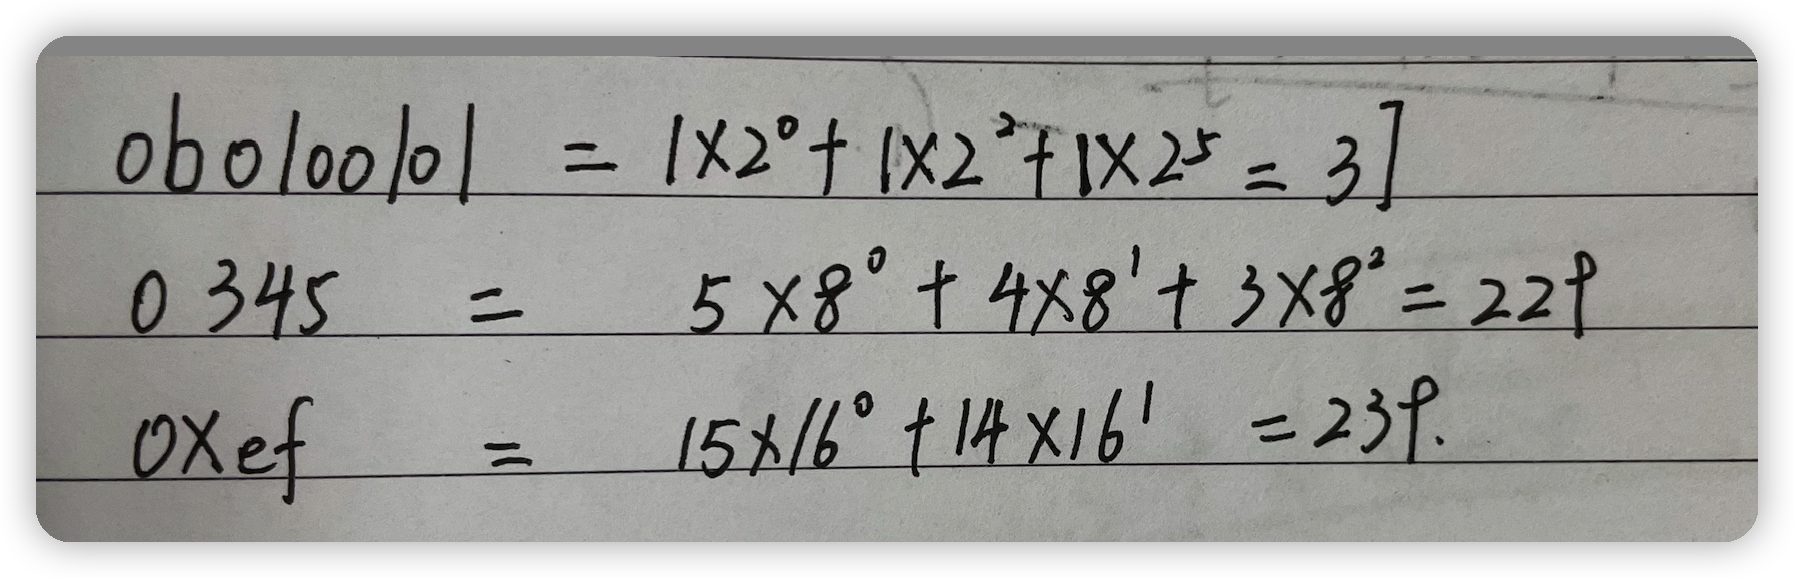 0b0100101 = 1×2⁰+1×2²+1×2⁵ = 37
0345 = 5×8⁰ + 4×8¹ + 3×8² = 229
0Xef = 15×16⁰ + 14×16¹ = 239.